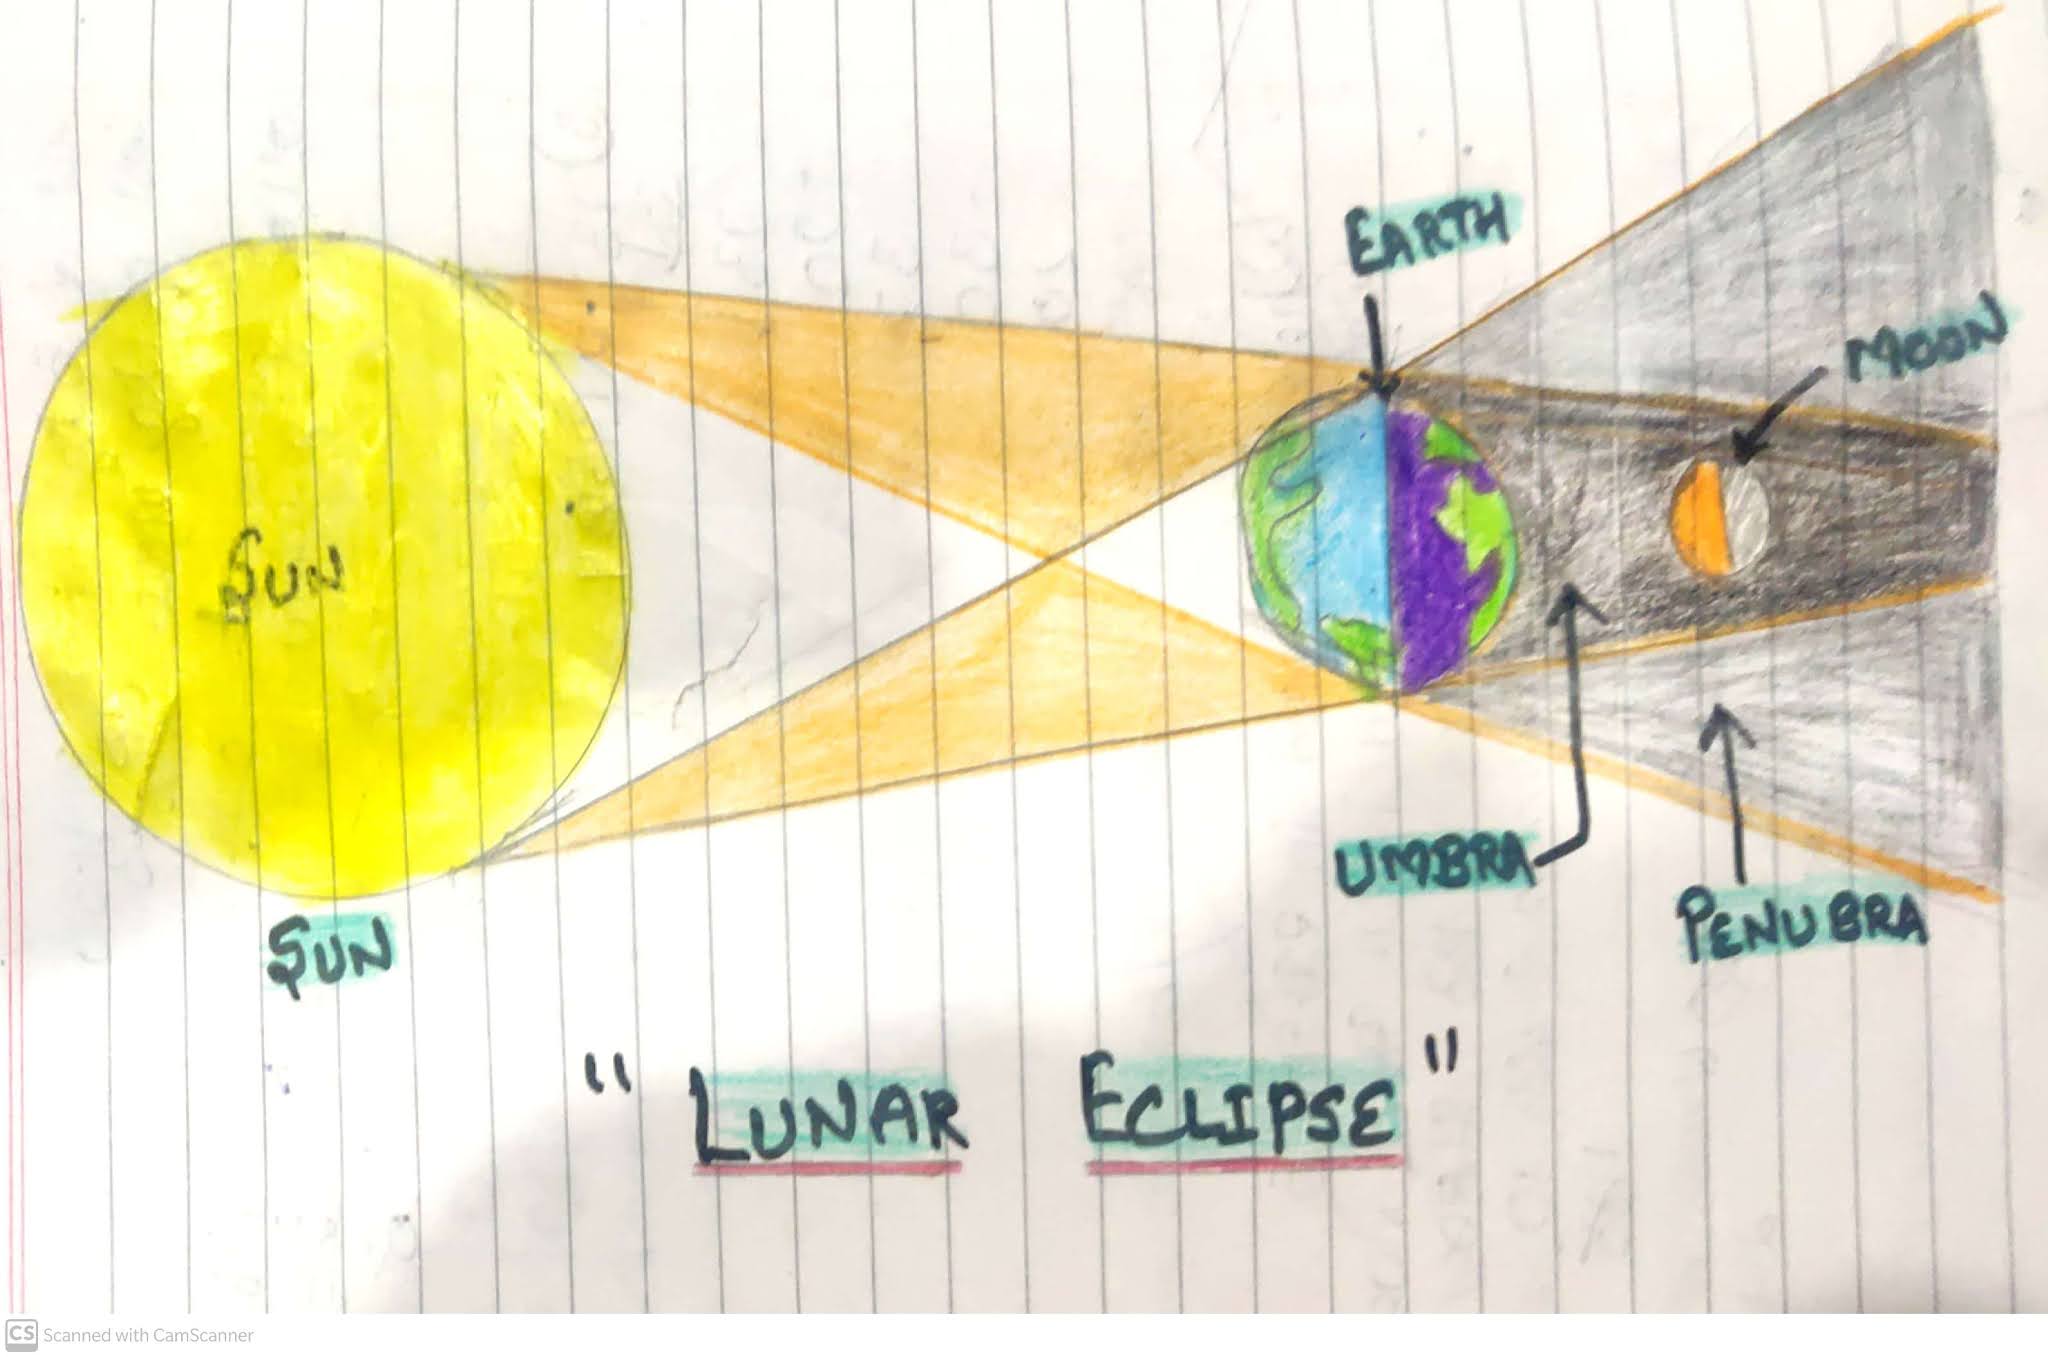 EARTH
MOON
SUN
UMBRA
PENUBRA
SUN
" LUNAR ECLIPSE "
CS Scanned with CamScanner